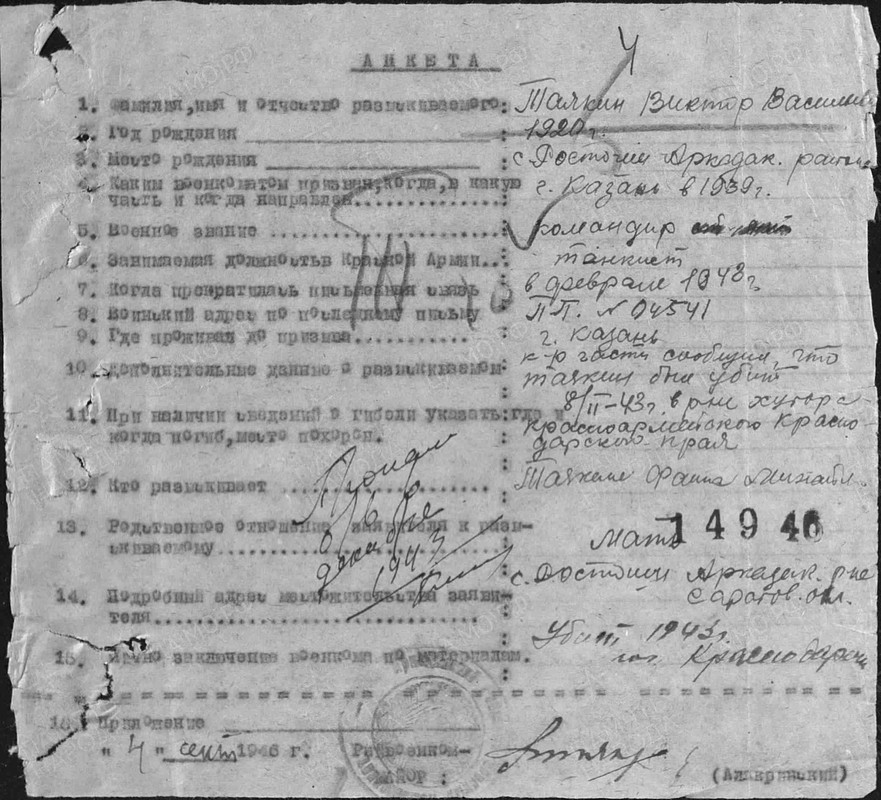 АНКЕТА
4
1. Фамилия,имя и отчество разыскиваемого: Таякин Виктор Василь
2. Год рождения : 1920 г.
3. Место рождения : с. Росточи Аркадак. района
4. Каким военкоматом призван,когда,в какую : г. Казань в 1939 г.
часть и когда направлен
5. Военное звание : командир
6. Занимаемая должностьв Красной Армии.. : танкист
7. Когда прекратилась письменная связь : в феврале 1943 г.
8. Воинский адрес по последнему письму : ПП. № 04541
9. Где проживал до призыва : г. Казань
10. Дополнительные данные о разыскиваемом: к-р части сообщил, что
Таякин был убит
11. При наличии сведений о гибели указать:где и 8/II-43г. в р-не хутора
когда погиб,место похорон. Красноармейского Красно-
дарского края
12. Кто разыскивает : Фаина Михайл.
13. Родственное отношение заявителя к разы-
скиваемому : мать
14946
Пропал
б/в в
декабре
1943
14. Подробный адрес местожительства заяви- : с. Росточи Аркадак. р-не
теля : Саратов. обл.
15. заключение военкома по материалам. : Убит 1943г.
Краснодарски
16. Приложение
" 4 " сент 1946 г. Райвоенком-
МАЙОР :
(Алякринский)